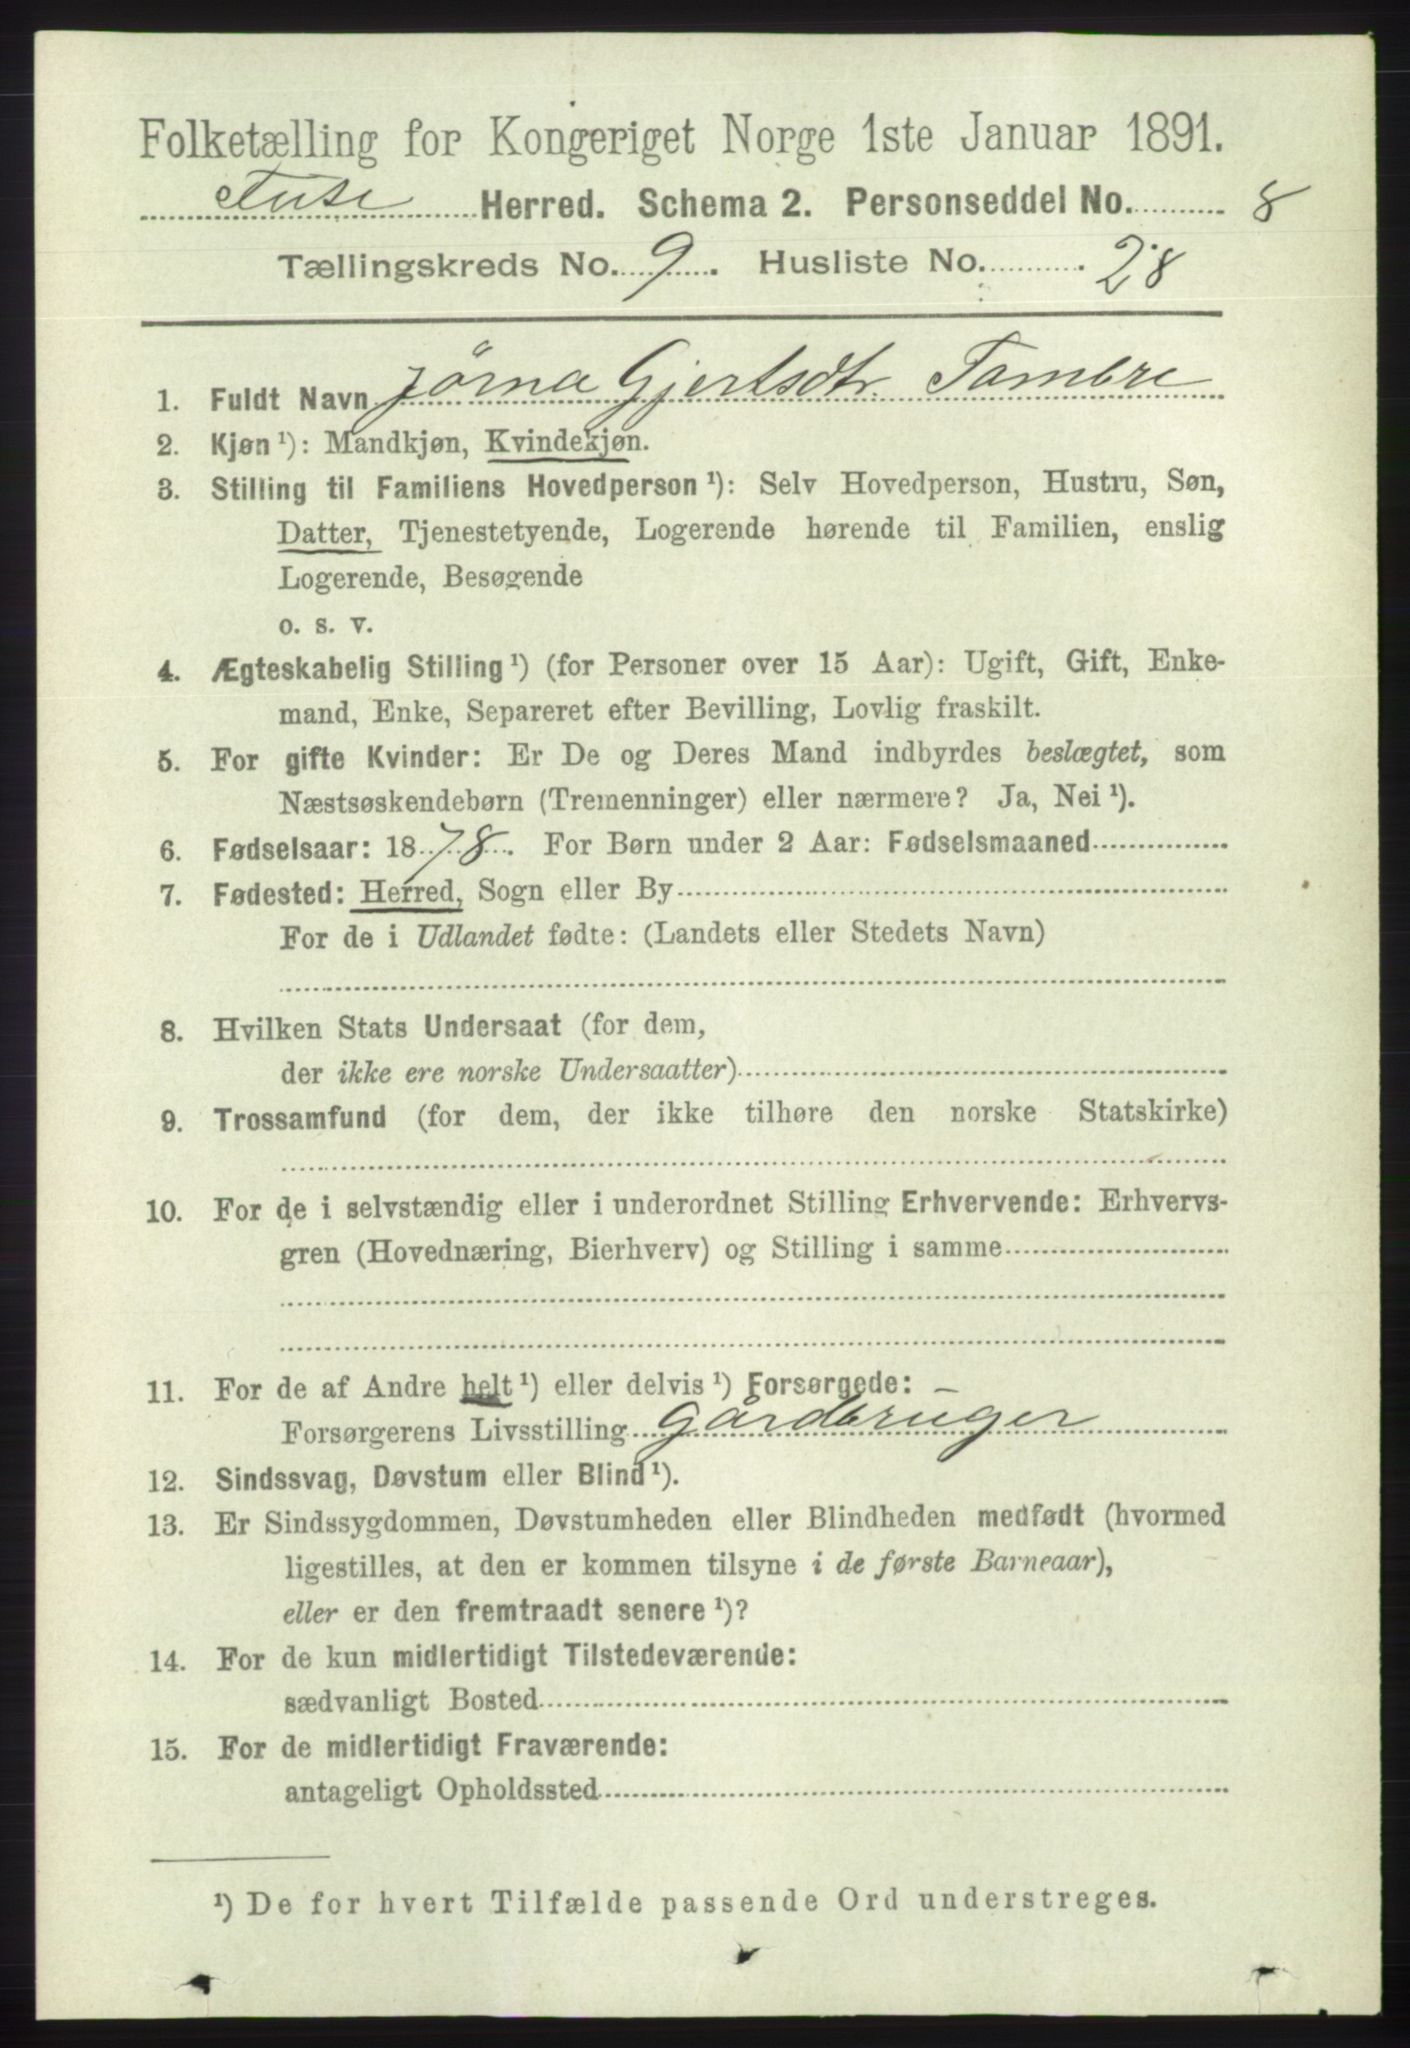 Folketælling for Kongeriget Norge 1ste Januar 1891.
Fuse Herred. Schema 2. Personseddel No. 8
Tællingskreds No. 9. Husliste No. 28
1. Fuldt Navn Jörna Gjertsdtr. Tombre
2. Kjøn ¹): Mandkjøn, Kvindekjøn.
3. Stilling til Familiens Hovedperson ¹): Selv Hovedperson, Hustru, Søn,
Datter, Tjenestetyende, Logerende hørende til Familien, enslig
Logerende, Besøgende
o. s. v.
4. Ægteskabelig Stilling ¹) (for Personer over 15 Aar): Ugift, Gift, Enke-
mand, Enke, Separeret efter Bevilling, Lovlig fraskilt.
5. For gifte Kvinder: Er De og Deres Mand indbyrdes beslægtet, som
Næstsøskendebørn (Tremenninger) eller nærmere? Ja, Nei ¹).
6. Fødselsaar: 1878. For Børn under 2 Aar: Fødselsmaaned
7. Fødested: Herred, Sogn eller By
For de i Udlandet fødte: (Landets eller Stedets Navn)
8. Hvilken Stats Undersaat (for dem,
der ikke ere norske Undersaatter)
9. Trossamfund (for dem, der ikke tilhøre den norske Statskirke)
10. For de i selvstændig eller i underordnet Stilling Erhvervende: Erhvervs-
gren (Hovednæring, Bierhverv) og Stilling i samme
11. For de af Andre helt ¹) eller delvis ¹) Forsørgede: –
Forsørgerens Livsstilling Gårdbruger
12. Sindssvag, Døvstum eller Blind ¹).
13. Er Sindssygdommen, Døvstumheden eller Blindheden medfødt (hvormed
ligestilles, at den er kommen tilsyne i de første Barneaar),
eller er den fremtraadt senere ¹)?
14. For de kun midlertidigt Tilstedeværende:
sædvanligt Bosted
15. For de midlertidigt Fraværende:
antageligt Opholdssted
¹) De for hvert Tilfælde passende Ord understreges.